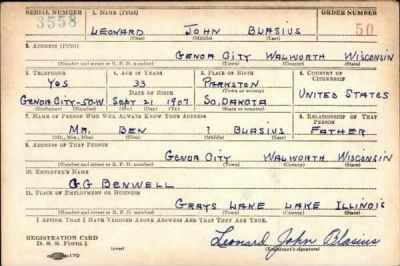 SERIAL NUMBER 1. NAME (Print) ORDER NUMBER
3558 LEONARD JOHN BLASIUS 50
(First) (Middle) (Last)
2. ADDRESS (Print)
GENOA CITY WALWORTH WISCONSIN
(Number and street or R. F. D. number) (Town) (County) (State)
3. TELEPHONE 4. AGE IN YEARS 5. PLACE OF BIRTH 6. COUNTRY OF CITIZENSHIP
YES 33 PARKSTON
DATE OF BIRTH (Town or county)
GENOA CITY-50-W SEPT 21 1907 SO. DAKOTA UNITED STATES
(Exchange) (Number) (Mo.) (Day) (Yr.) (State or country)
7. NAME OF PERSON WHO WILL ALWAYS KNOW YOUR ADDRESS 8. RELATIONSHIP OF THAT PERSON
MR. BEN ? BLASIUS FATHER
(Mr., Mrs., Miss) (First) (Middle) (Last)
9. ADDRESS OF THAT PERSON
GENOA CITY WALWORTH WISCONSIN
(Number and street or R. F. D. number) (Town) (County) (State)
10. EMPLOYER'S NAME
G.G BENWELL
11. PLACE OF EMPLOYMENT OR BUSINESS
GRAYS LAKE LAKE ILLINOIS
(Number and street or R. F. D. number) (Town) (County) (State)
I AFFIRM THAT I HAVE VERIFIED ABOVE ANSWERS AND THAT THEY ARE TRUE.
REGISTRATION CARD Leonard John Blasius
D. S. S. FORM 1 (Registrant's signature)